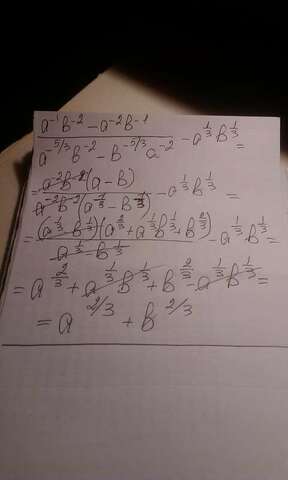 (a⁻¹b⁻² − a⁻²b⁻¹)/(a^(−5/3)b⁻² − b^(−5/3)a⁻²) − a^(1/3)b^(1/3) =
= (a⁻²b⁻²(a−b))/(a⁻²b⁻²(a^(1/3) − b^(1/3))) − a^(1/3)b^(1/3) =
= ((a^(1/3) − b^(1/3))(a^(2/3) + a^(1/3)b^(1/3) + b^(2/3)))/(a^(1/3) − b^(1/3)) − a^(1/3)b^(1/3) =
= a^(2/3) + a^(1/3)b^(1/3) + b^(2/3) − a^(1/3)b^(1/3) =
= a^(2/3) + b^(2/3)